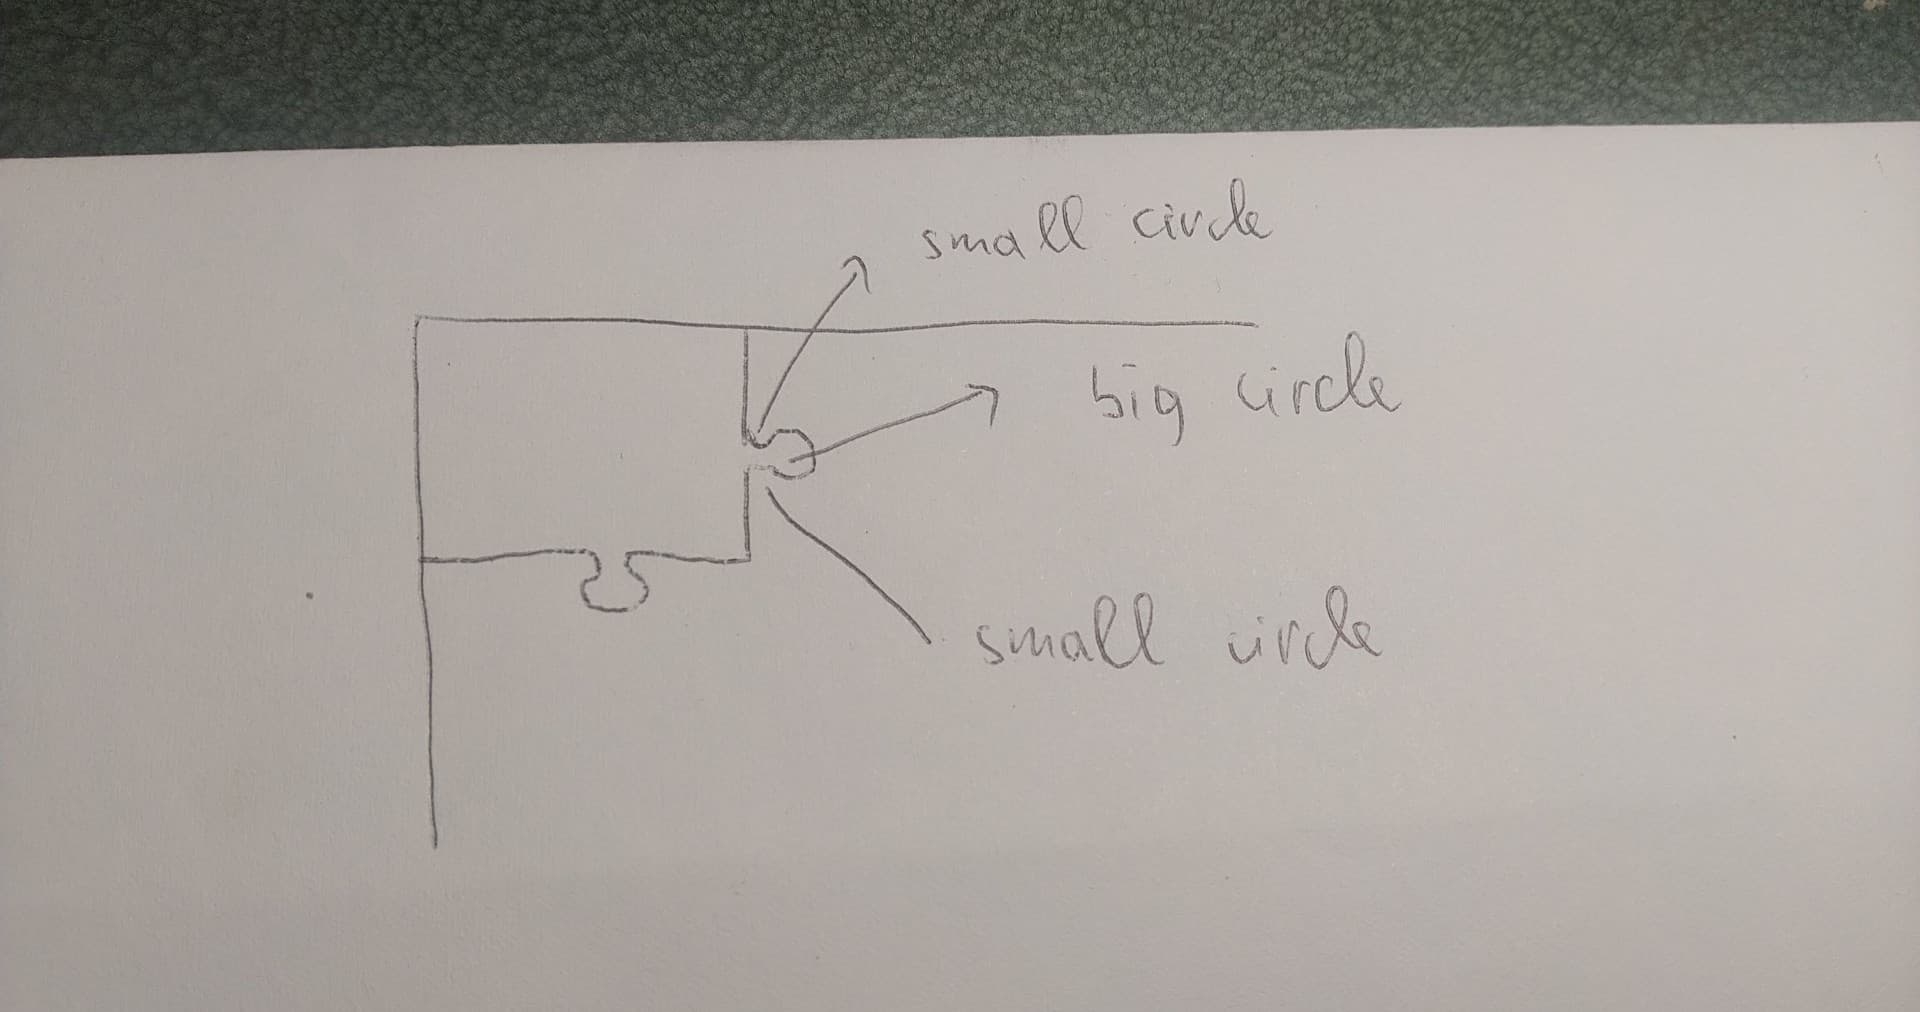 small circle
big circle
small circle